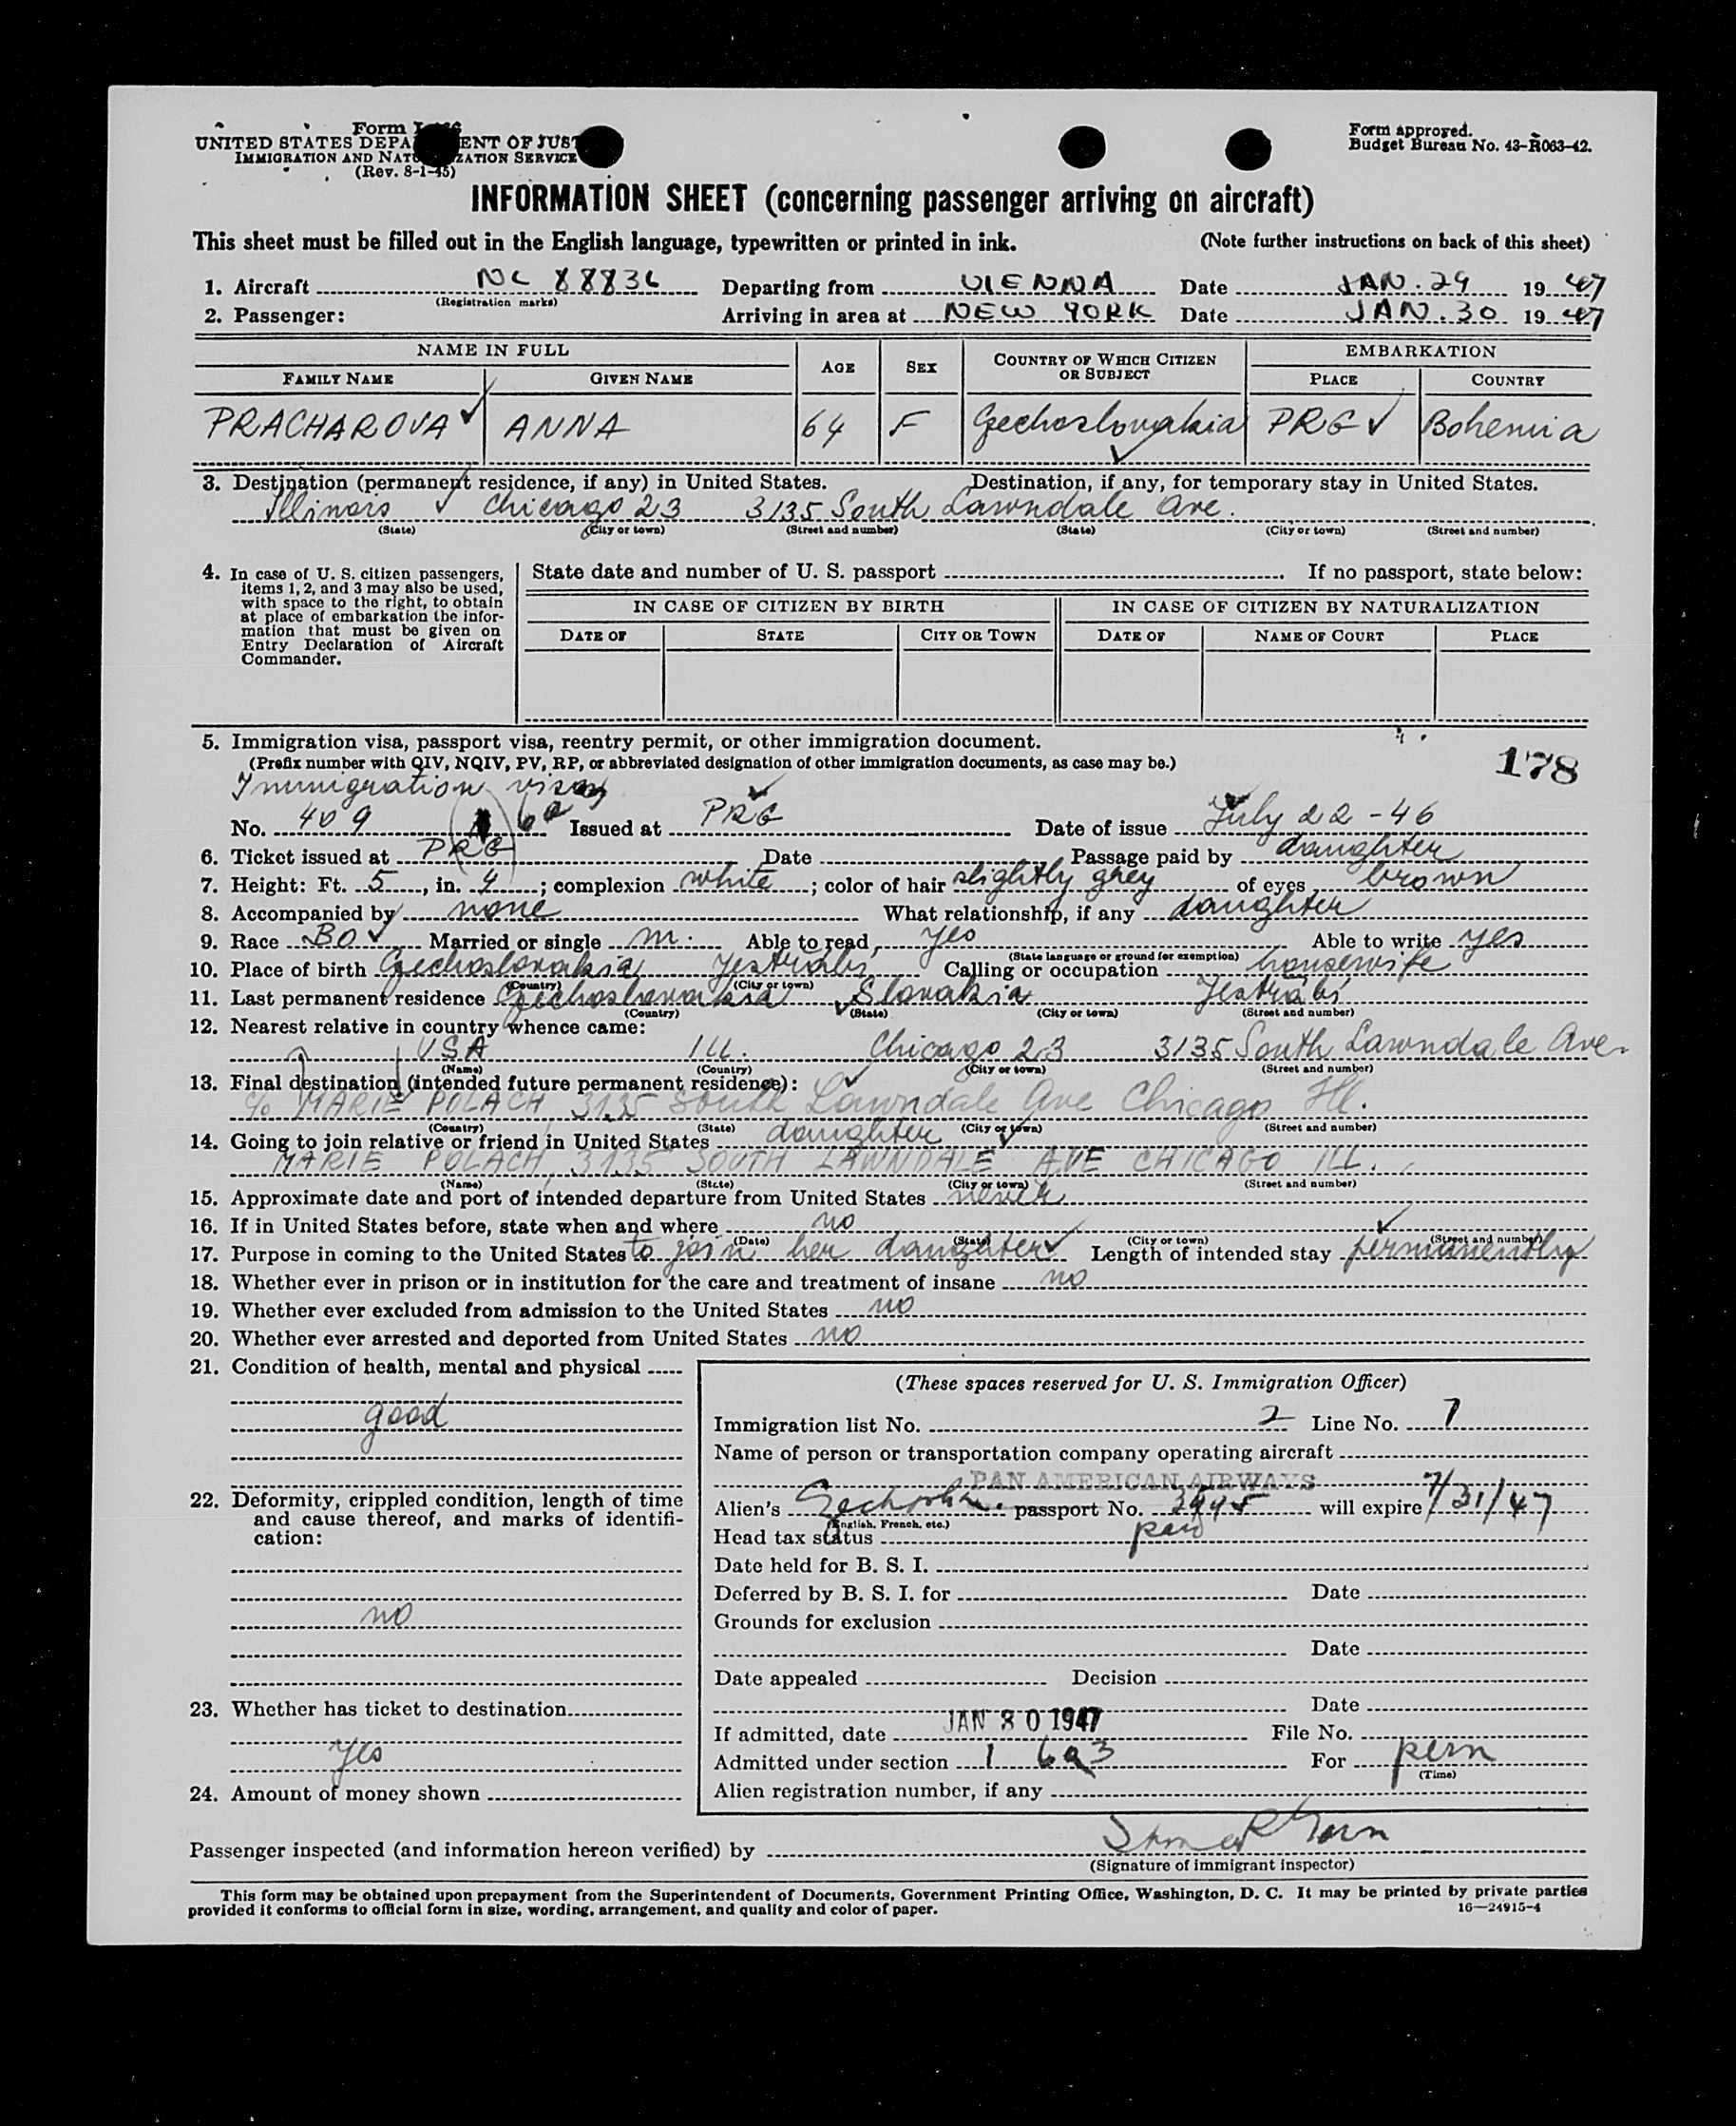 Form I-466
UNITED STATES DEPARTMENT OF JUSTICE
IMMIGRATION AND NATURALIZATION SERVICE
(Rev. 8-1-45)
Form approved.
Budget Bureau No. 43-R063-42.
INFORMATION SHEET (concerning passenger arriving on aircraft)
This sheet must be filled out in the English language, typewritten or printed in ink. (Note further instructions on back of this sheet)
1. Aircraft NC 88836 Departing from VIENNA Date JAN. 29 1947
(Registration marks)
2. Passenger: Arriving in area at NEW YORK Date JAN. 30 1947
NAME IN FULL AGE SEX COUNTRY OF WHICH CITIZEN OR SUBJECT EMBARKATION
FAMILY NAME GIVEN NAME PLACE COUNTRY
PRACHAROVA ANNA 64 F Czechoslovakia PRG Bohemia
3. Destination (permanent residence, if any) in United States. Destination, if any, for temporary stay in United States.
Illinois Chicago 23 3135 South Lawndale Ave.
(State) (City or town) (Street and number) (State) (City or town) (Street and number)
4. In case of U. S. citizen passengers,
items 1, 2, and 3 may also be used,
with space to the right, to obtain
at place of embarkation the infor-
mation that must be given on
Entry Declaration of Aircraft
Commander.
State date and number of U. S. passport If no passport, state below:
IN CASE OF CITIZEN BY BIRTH IN CASE OF CITIZEN BY NATURALIZATION
DATE OF STATE CITY OR TOWN DATE OF NAME OF COURT PLACE
5. Immigration visa, passport visa, reentry permit, or other immigration document.
(Prefix number with QIV, NQIV, PV, RP, or abbreviated designation of other immigration documents, as case may be.)
178
Immigration visa
No. 409 6a Issued at PRG Date of issue July 22 - 46
6. Ticket issued at PRG Date Passage paid by daughter
7. Height: Ft. 5, in. 4; complexion white; color of hair slightly grey of eyes brown
8. Accompanied by none What relationship, if any daughter
9. Race BO Married or single m. Able to read yes Able to write yes
(State language or ground for exemption)
10. Place of birth Czechoslovakia Jestrabi Calling or occupation housewife
(Country) (City or town)
11. Last permanent residence Czechoslovakia Slovakia Jestrábí
(Country) (State) (City or town) (Street and number)
12. Nearest relative in country whence came:
USA ILL. Chicago 23 3135 South Lawndale Ave.
(Name) (Country) (City or town) (Street and number)
13. Final destination (intended future permanent residence):
c/o MARIE POLACH, 3135 South Lawndale Ave Chicago Ill.
(Country) (State) (City or town) (Street and number)
14. Going to join relative or friend in United States daughter
MARIE POLACH, 3135 SOUTH LAWNDALE AVE CHICAGO ILL.
(Name) (State) (City or town) (Street and number)
15. Approximate date and port of intended departure from United States never
16. If in United States before, state when and where no
(Date) (State) (City or town) (Street and number)
17. Purpose in coming to the United States to join her daughter Length of intended stay permanently
18. Whether ever in prison or in institution for the care and treatment of insane no
19. Whether ever excluded from admission to the United States no
20. Whether ever arrested and deported from United States no
21. Condition of health, mental and physical
good
22. Deformity, crippled condition, length of time
and cause thereof, and marks of identifi-
cation:
no
23. Whether has ticket to destination
yes
24. Amount of money shown
(These spaces reserved for U. S. Immigration Officer)
Immigration list No. 2 Line No. 7
Name of person or transportation company operating aircraft
PAN AMERICAN AIRWAYS
Alien's passport No. will expire 7/31/47
(English, French, etc.)
Head tax status paid
Date held for B. S. I.
Deferred by B. S. I. for Date
Grounds for exclusion
Date
Date appealed Decision
Date
If admitted, date JAN 30 1947 File No.
Admitted under section 1 6a3 For perm
(Time)
Alien registration number, if any
Passenger inspected (and information hereon verified) by
(Signature of immigrant inspector)
This form may be obtained upon prepayment from the Superintendent of Documents, Government Printing Office, Washington, D. C. It may be printed by private parties
provided it conforms to official form in size, wording, arrangement, and quality and color of paper. 16—24915-4